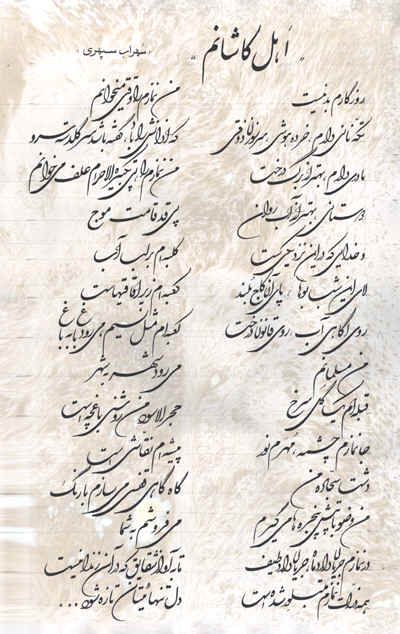 " اهل کاشانم "
( سهراب سپهری )
روزگارم بد نیست
تکه نانی دارم ، خرده هوشی ، سر سوزن ذوقی
مادری دارم ، بهتر از برگ درخت
دوستانی ، بهتر از آب روان
و خدایی که در این نزدیکی است
لای این شب بوها ، پای آن کاج بلند
روی آگاهی آب ، روی قانون درخت
من مسلمانم
قبله ام یک گل سرخ
جانمازم چشمه ، مهرم نور
دشت سجاده من
من وضو با تپش پنجره ها می گیرم
در نمازم جریان دارد ماه ، جریان دارد طیف
همه ذرات نمازم متبلور شده است
من نمازم را وقتی میخوانم
که اذانش را باد ، گفته باشد سر گلدسته سرو
من نمازم را پی تکبیرة الاحرام علف می خوانم
پی قد قامت موج
کعبه ام بر لب آب
کعبه ام زیر اقاقیهاست
کعبه ام مثل نسیم می رود باغ به باغ
می رود شهر به شهر
حجر الاسود من روشنی باغچه است
پیشه ام نقاشی است
گاه گاهی قفسی می سازم با رنگ
می فروشم به شما
تا به آواز شقایق که در آن زندانیست
دل تنهاییتان تازه شود ...